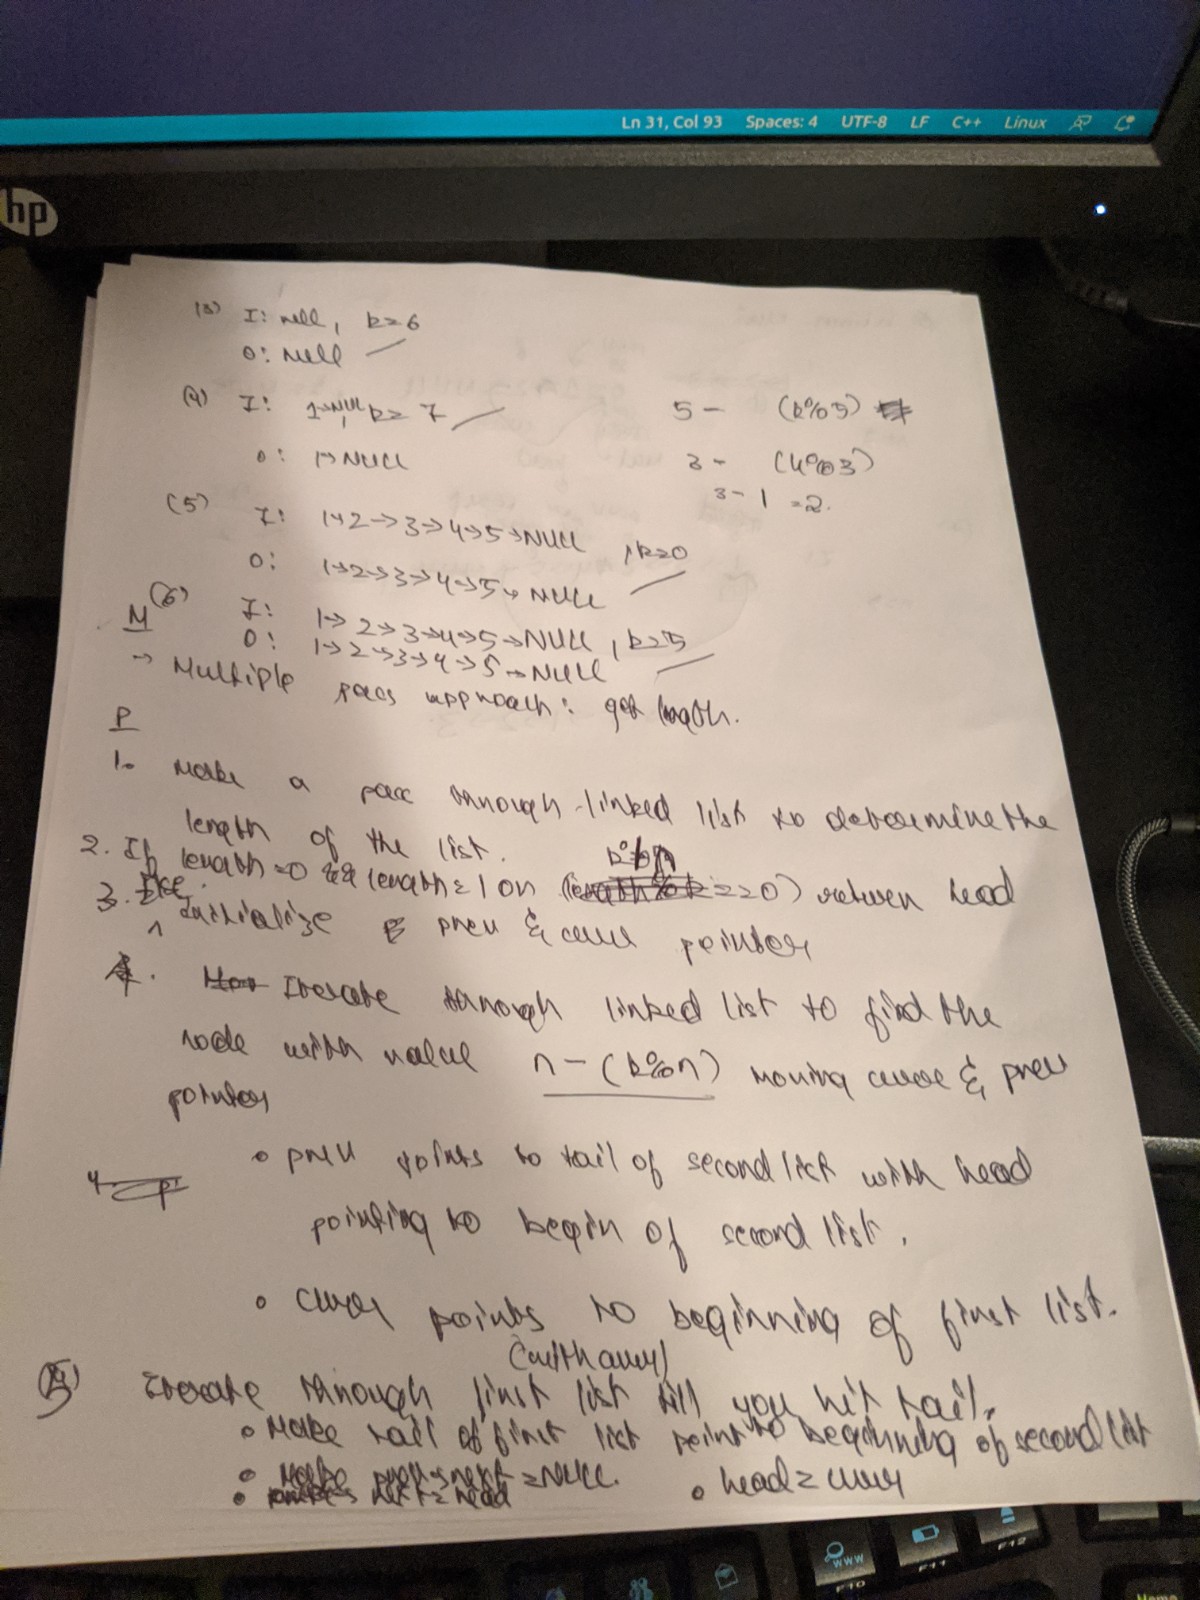 Ln 31, Col 93 Spaces: 4 UTF-8 LF C++ Linux
hp
(3) I: null, k=6
O: null
(4) I: 1→NULL, k= 7
O: 1→NULL
5 - (k%5)
3 - (4%3)
3-1 =2.
(5) I: 1→2→3→4→5→NULL, k=0
O: 1→2→3→4→5→NULL
M
(6) I: 1→2→3→4→5→NULL, k=5
O: 1→2→3→4→5→NULL
→ Multiple pass approach: get length.
P
1. Make a pass through linked list to determine the
length of the list.
k%n
2. If length=0 && length=1 or ( ==0) return head
3. Else initialize prev & curr pointer
4. Iterate through linked list to find the
node with value n-(k%n) moving curr & prev
pointer
• prev points to tail of second list with head
pointing to begin of second list.
• curr points to beginning of first list.
(with curr)
5 Iterate through first list till you hit tail.
• Make tail of first list point to beginning of second list
• Make prev→next=NULL.
• head=curr
F10 F11 F12
www
Home